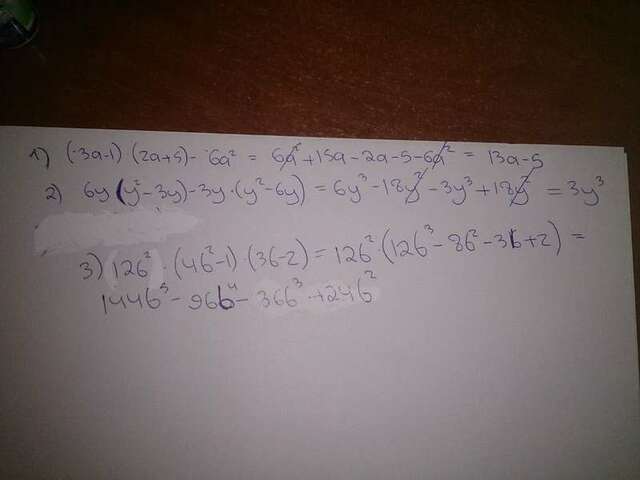 1) (3a-1)·(2a+5)-6a² = 6a²+15a-2a-5-6a² = 13a-5
2) 6y(y²-3y)-3y·(y²-6y) = 6y³-18y²-3y³+18y² = 3y³
3) 12b²·(4b²-1)·(3b-2) = 12b²(12b³-8b²-3b+2) =
144b⁵-96b⁴-36b³+24b²